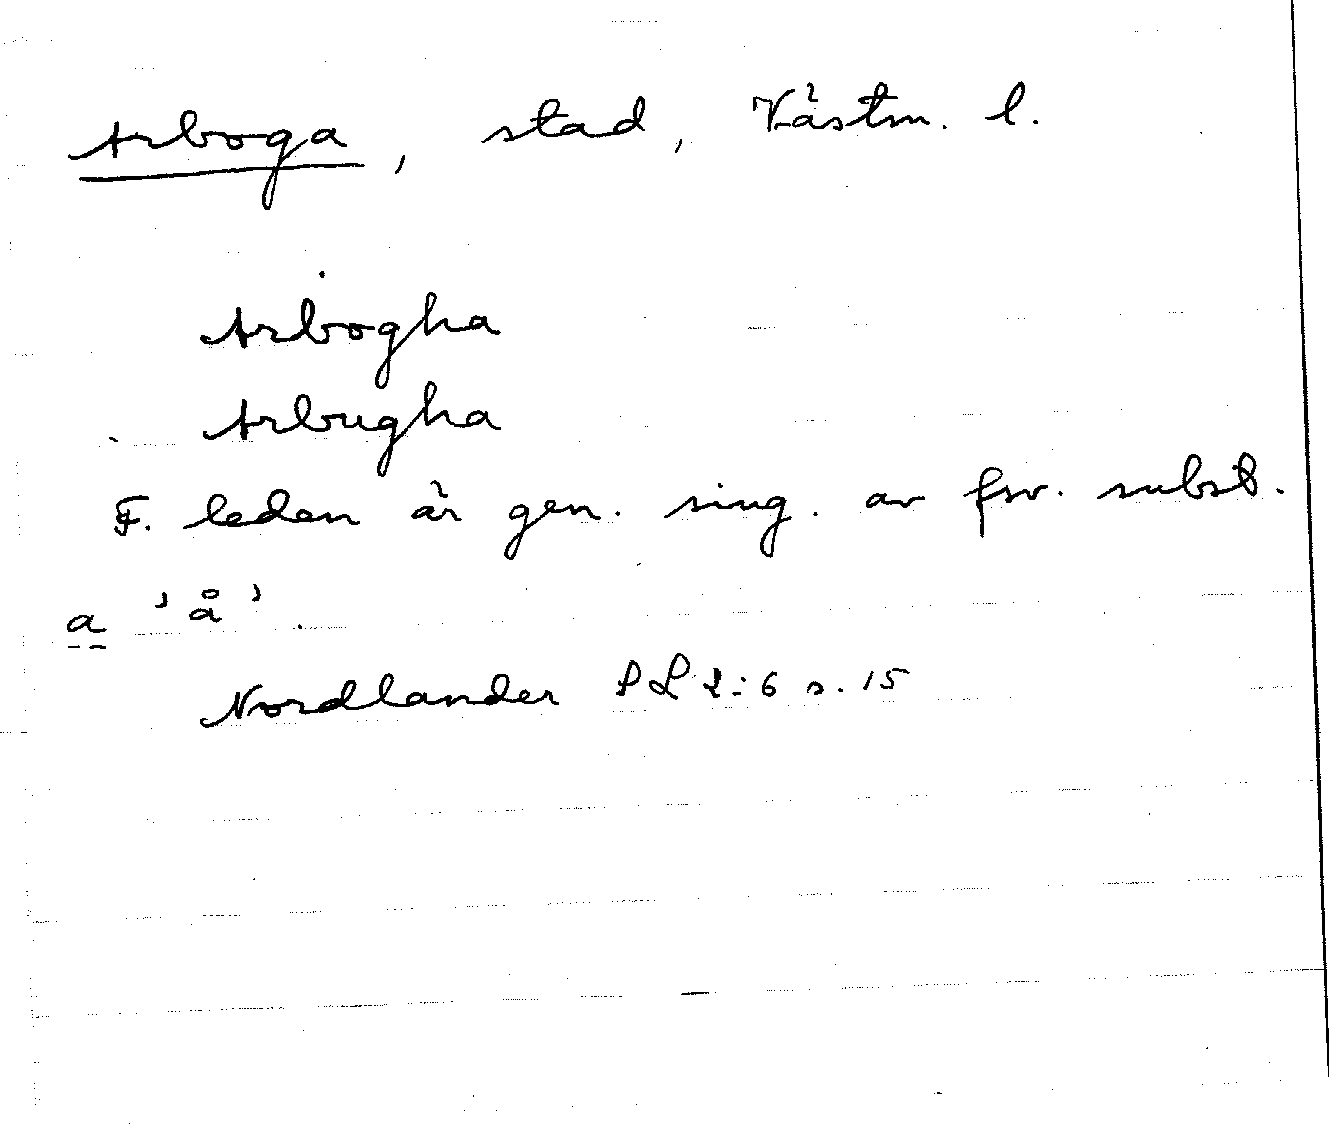 Arboga, stad, Västm. l.
Arbogha
Arbugha
F. leden är gen. sing. av fsv. subst.
a 'å'.
Nordlander SL 2:6 s. 15